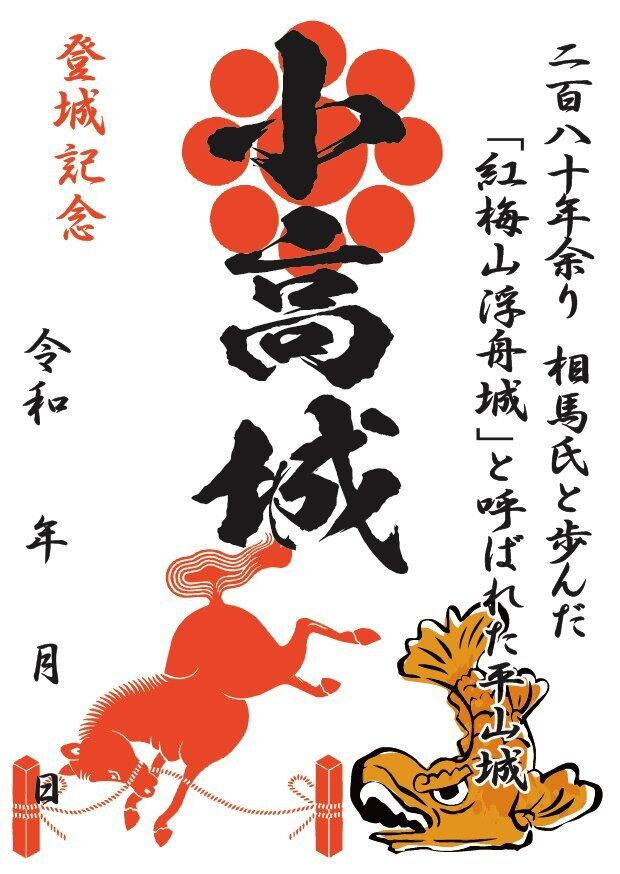 二百八十年余り　相馬氏と歩んだ
「紅梅山浮舟城」と呼ばれた平山城
小高城
登城記念
令和　年　月　日